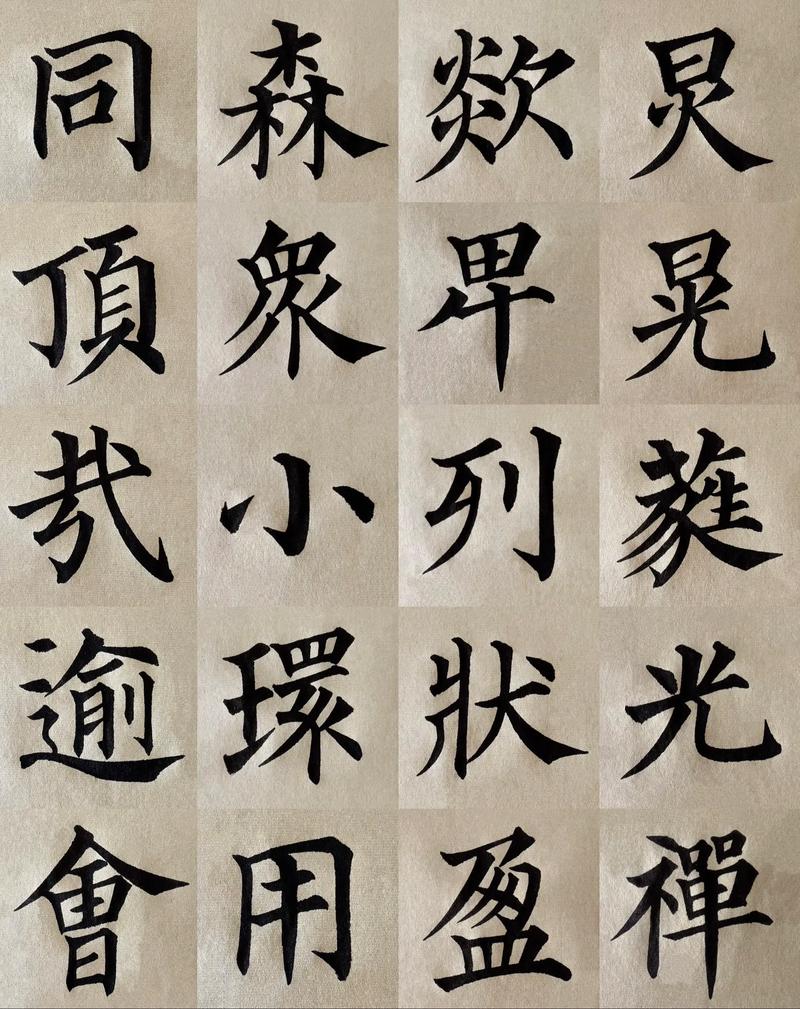 同森欻炅
頂眾卑晃
㦲小列蕤
逾環狀光
會用盈禪